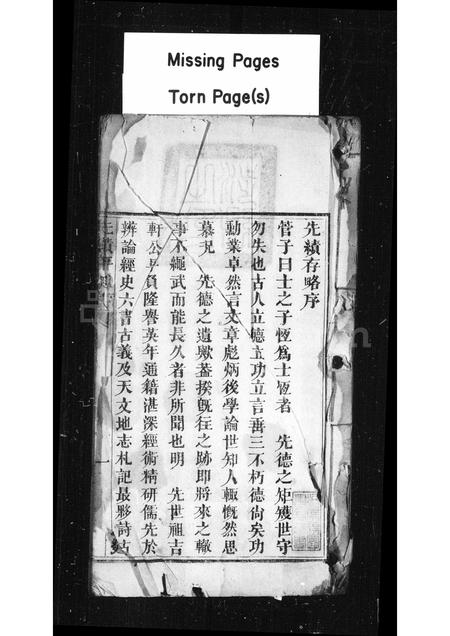 Missing Pages
Torn Page(s)
先績存略序
管子曰士之子恆為士恆者 先德之矩矱世守
勿失也古人立德立功立言垂三不朽德尙矣功
勳業卓然言文章彪炳後學論世知人輒慨然思
慕況 先德之遺徽葢揆旣往之跡即將來之轍
事不繩武而能長久者非所聞也明 先世祖吉
軒公平負隆譽英年通籍湛深經術精研儒先於
辨論經史六書古義及天文地志札記最夥詩古